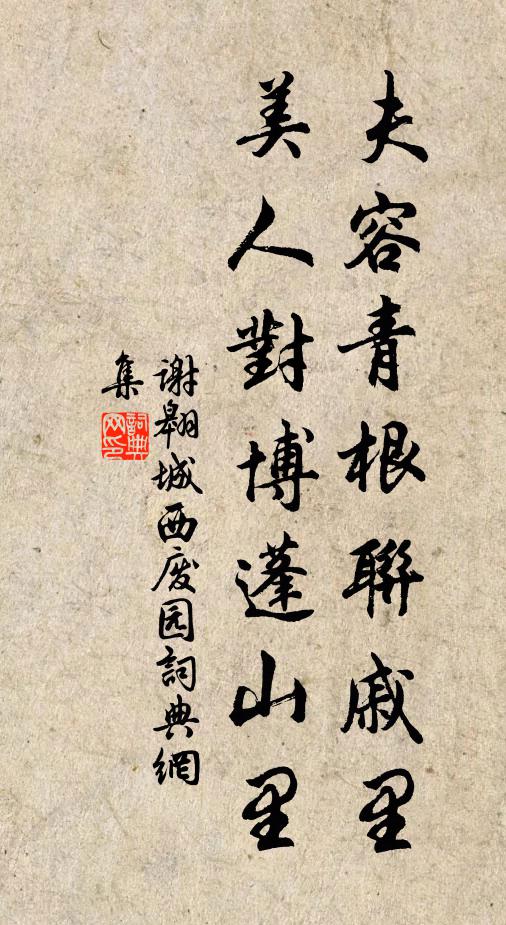 夫容青根聯戚里
美人對博蓬山里
谢翱城西废园詞典網
集
詞典网印